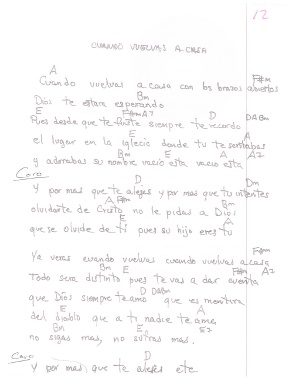 12
CUANDO VUELVAS A CASA
A F#m
Cuando vuelvas a casa con los brazos abiertos
Bm
Dios te estara esperando
E F#m A7 D D A Bm
Pues desde que te fuiste siempre te recordo
E A
el lugar en la iglecia donde tu te sentabas
Bm E A A7
y adorabas su nombre vacio esta, vacio esta
Coro D Dm
Y por mas que te alejes y por mas que tu intentes
A F#m Bm
olvidarte de Cristo no le pidas a Dios
E A
que se olvide de ti pues su hijo eres tu
F#m
Ya veras cuando vuelvas cuando vuelvas a casa
Bm E F#m A7
Todo sera distinto pues te vas a dar cuenta
D D A Bm
que Dios siempre te amo que es mentira
E A
del diablo que a ti nadie te ame,
Bm E
no sigas mas, no sufras mas.
Coro D
Y por mas que te alejes etc